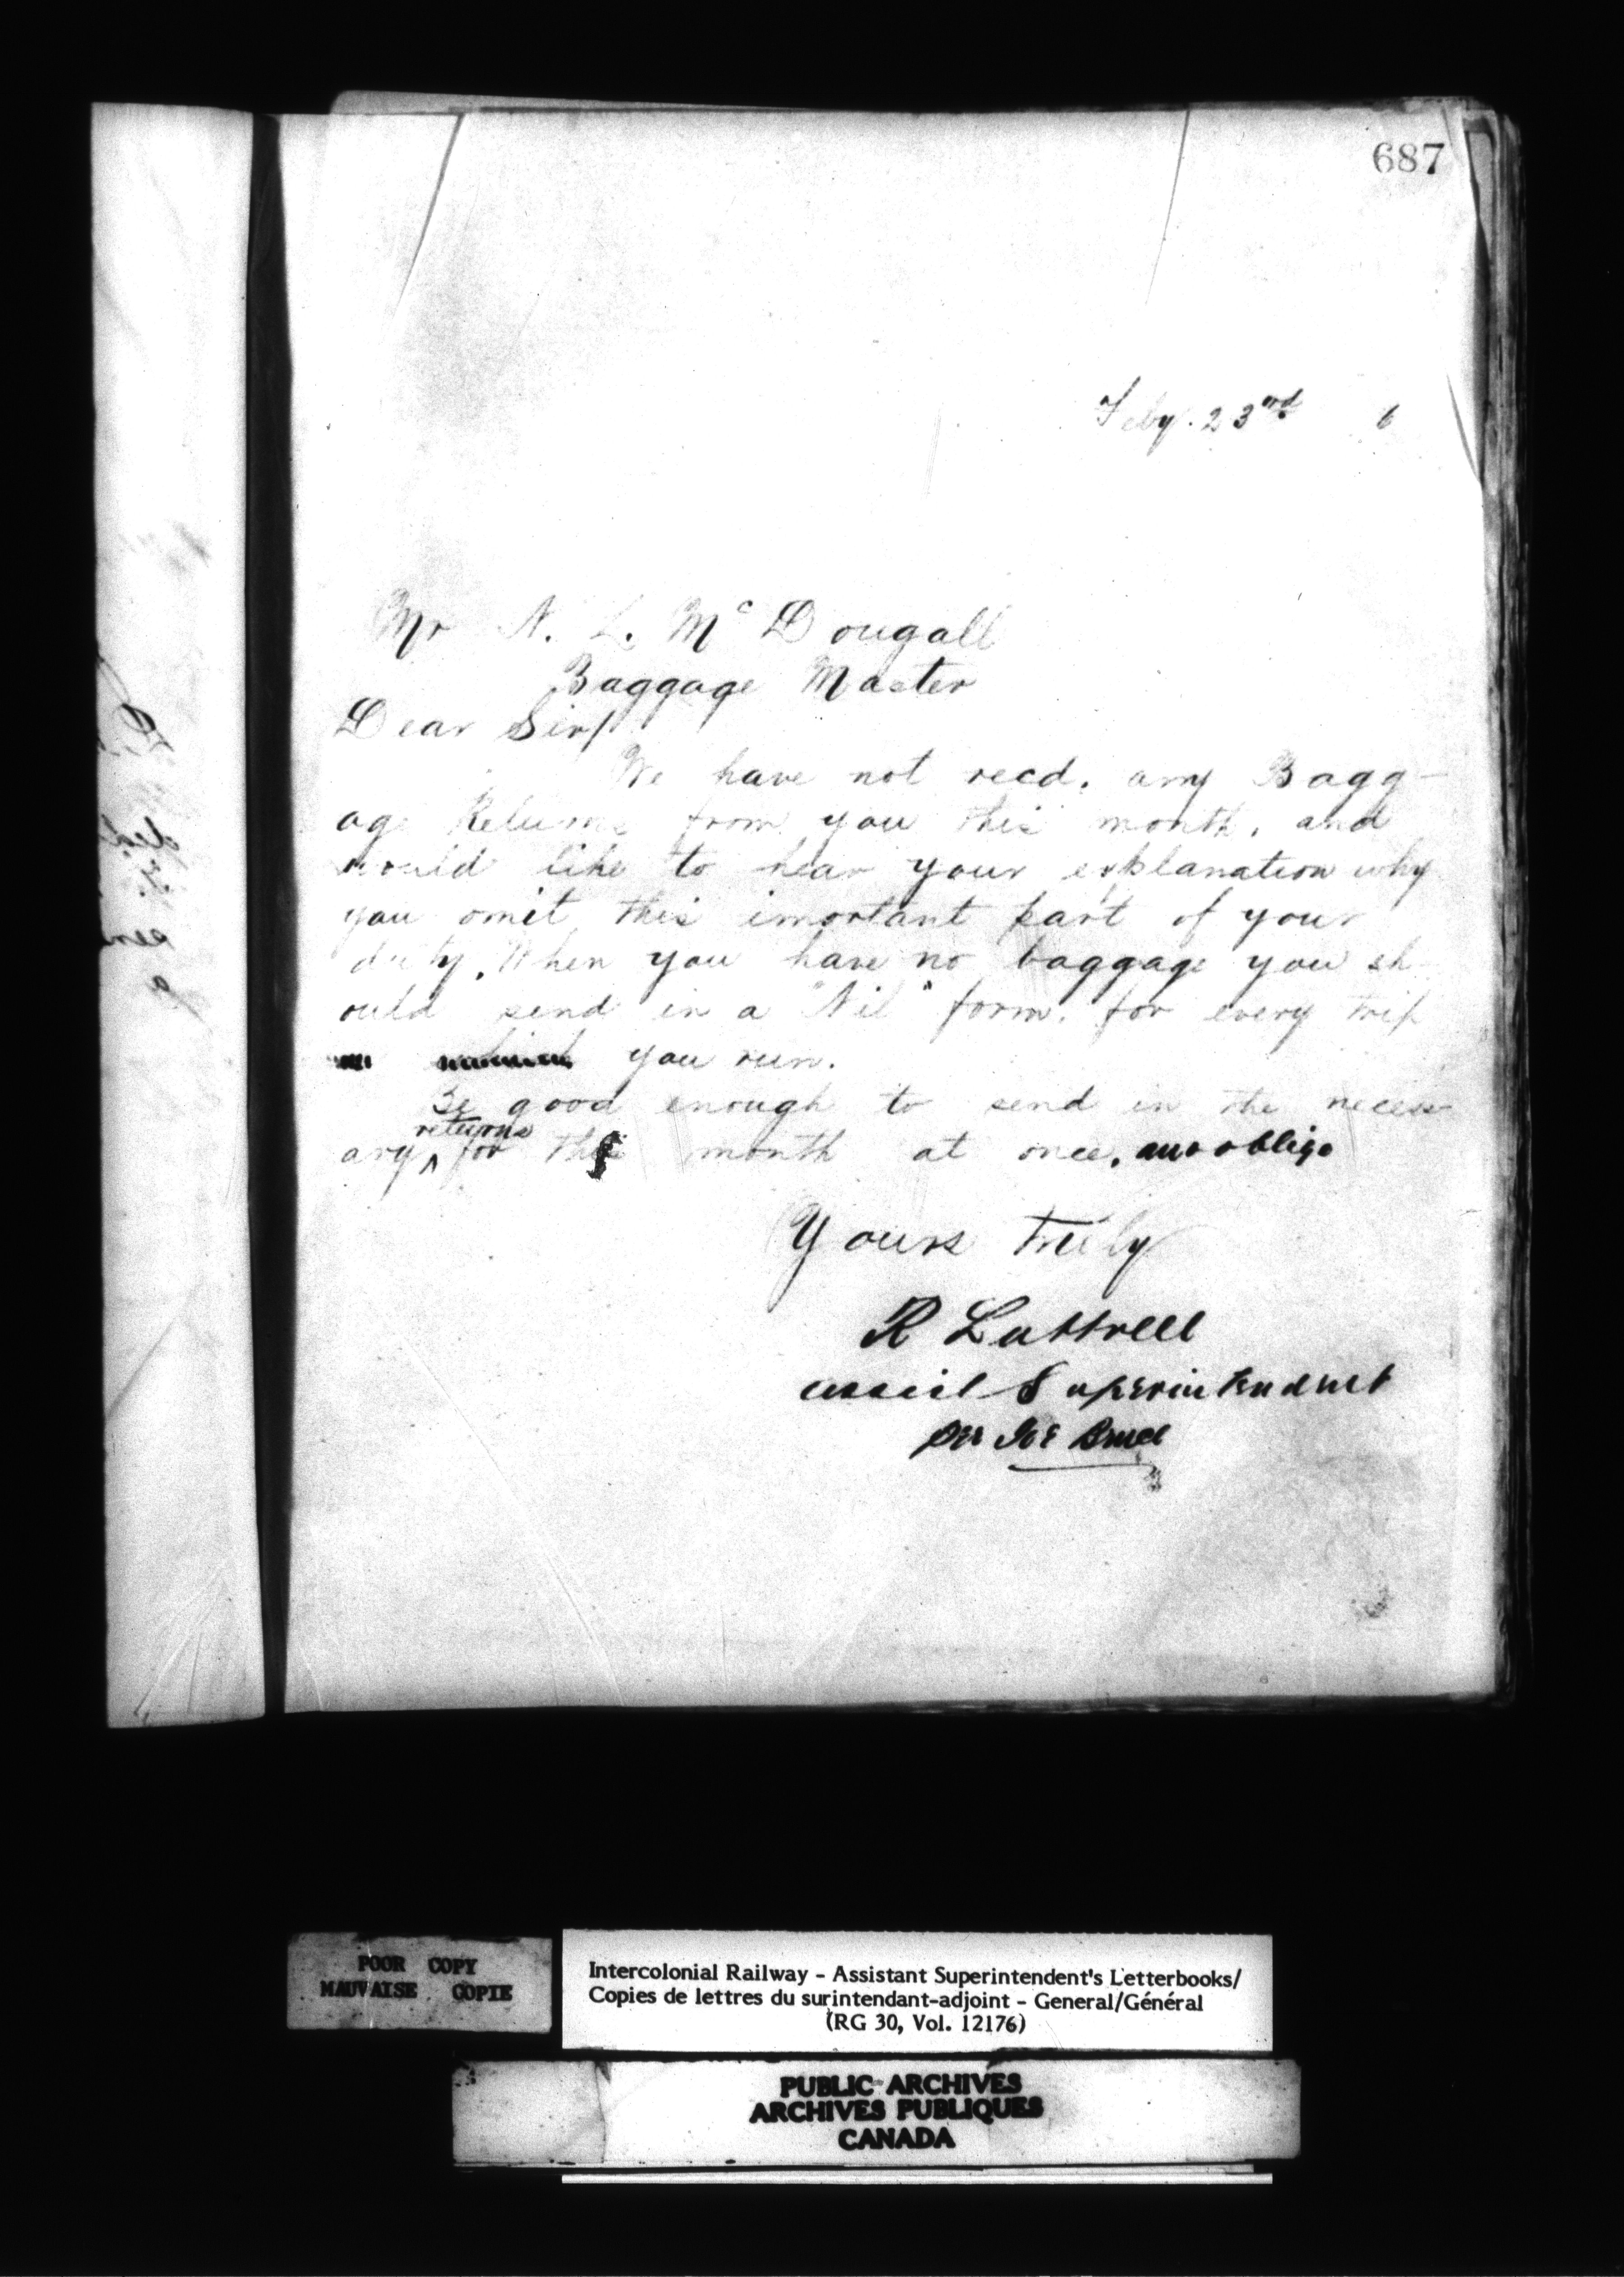 687
Feby. 23rd 6
Mr N. L. McDougall
Baggage Master
Dear Sir/
We have not recd. any Bagg-
age Returns from you this month, and
would like to hear your explanation why
you omit this imortant part of your
duty. When you have no baggage you sh-
ould send in a "Nil" form. for every trip
you run.
Be good enough to send in the necess
returns
ary ^ for this month at once. and oblige
Yours truly
R Luttrell
Assist Superintendent
POOR COPY
MAUVAISE COPIE
Intercolonial Railway - Assistant Superintendent's Letterbooks/
Copies de lettres du surintendant-adjoint - General/Général
(RG 30, Vol. 12176)
PUBLIC ARCHIVES
ARCHIVES PUBLIQUES
CANADA